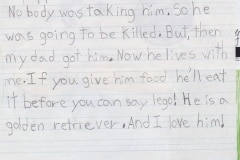 No body was taking him. So he
was going to be killed. But, then
my dad got him. Now he lives with
me. If you give him food he'll eat
it before you can say lego! He is a
golden retriever. And I love him!